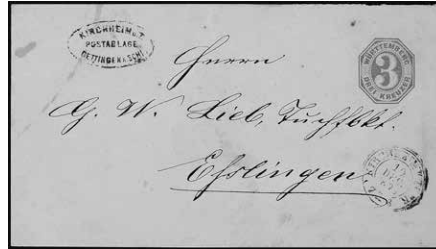 KIRCHHEIM U.T.
POSTABLAGE
OETTINGEN A. SCHL.
WÜRTTEMBERG
3
DREI KREUZER
Herrn
G. W. Lieb, Tuchfbkt.
Eßlingen